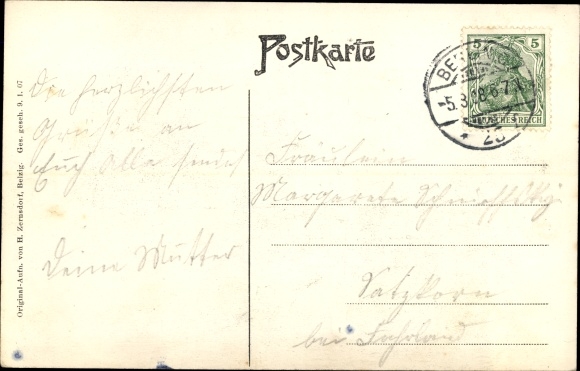 Postkarte
5 5
BE
-5.3.  8 6-7
DEUTSCHES REICH
Die herzlichsten
Grüße an
Euch alle sendet
Deine Mutter
Fräulein
Margarete
Satzkorn
bei Fahrland
Original-Aufn. von H. Zernsdorf, Belzig. Ges. gesch. 9. 1. 07